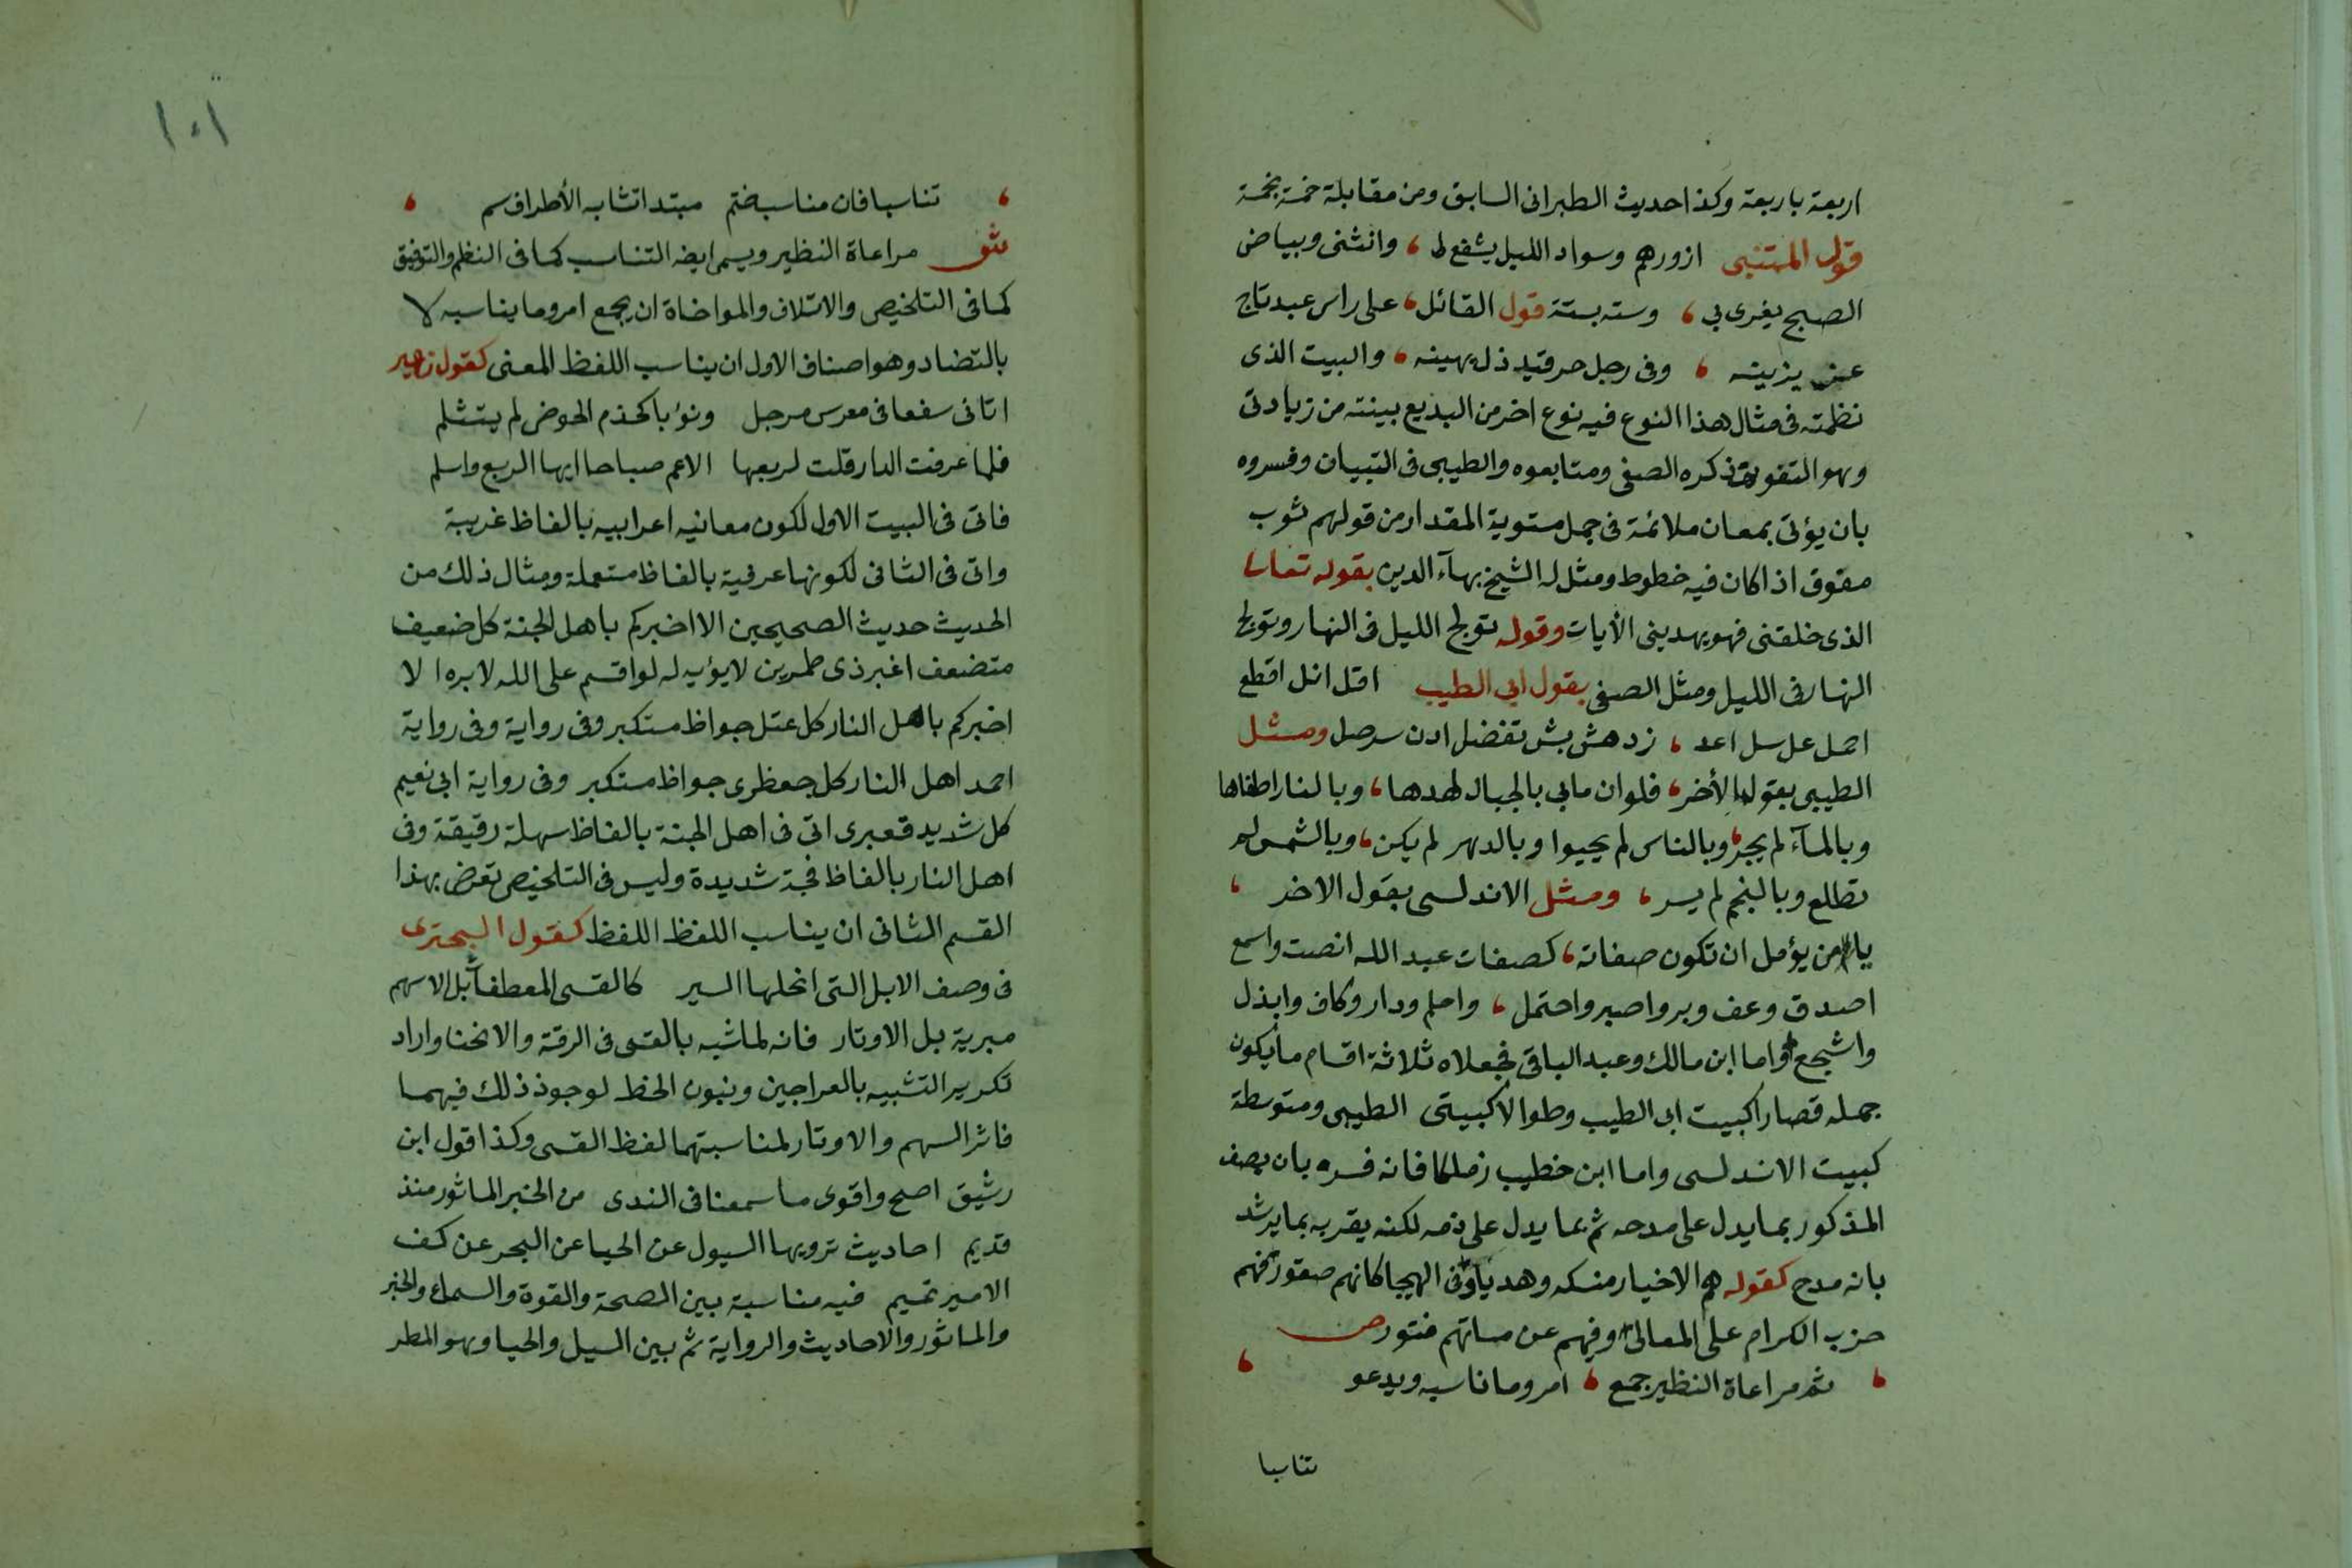 اربعة باربعة وكذا حديث الطبرانى السابق ومن مقابلة خمسة بخمسة
قول المتنبى ازورهم وسواد الليل يشفع لى ، وانثنى وبياض
الصبح يغرى بى ، وستة بستة قول القائل ، على راس عبد تاج
عز يزينه ، وفى رجل حر قيد ذل يهينه ، والبيت الذى
نظمته فى مثال هذا النوع فيه نوع اخر من البديع بينته من زيادتى
وهو التفويف ذكره الصفى ومتابعوه والطيبى فى التبيان وفسروه
بان يؤتى بمعان ملائمة فى جمل مستوية المقدار من قولهم ثوب
مفوف اذا كان فيه خطوط ومثل له الشيخ بهآء الدين بقوله تعالى
الذى خلقنى فهو يهدينى الأيات وقوله تولج الليل فى النهار وتولج
النهار فى الليل ومثل الصفى بقول ابى الطيب اقل انل اقطع
احمل عل سل اعد ، زد هش بش تفضل ادن سر صل ومثل
الطيبى بقول الأخر ، فلو ان مابى بالجبال لهدها ، وبالنار اطفاها
وبالمآء لم يجر ، وبالناس لم يحيوا وبالدهر لم يكن ، وبالشمس لم
تطلع وبالنجم لم يسر ، ومثل الاندلسى بقول الاخر ،
يا من يؤمل ان تكون صفاته ، كصفات عبد الله انصت واسمع
اصدق وعف وبر واصبر واحتمل ، واحلم ودار وكاف وابذل
واشجع واما ابن مالك وعبد الباقى فجعلاه ثلاثة اقسام ما يكون
جمله قصارا كبيت ابى الطيب وطوالا كبيتى الطيبى ومتوسطة
كبيت الاندلسى واما ابن خطيب زملكا فانه فسره بان يصف
المذكور بما يدل على مدحه ثم بما يدل على ذمه لكنه يقربه بما يرشد
بانه مدح كقوله هم الاخيار منسكه وهديا وفى الهيجا كانهم صقور بهم
حزب الكرام على المعالى وفيهم عن مساتهم فتور ص
، ثم مراعاة النظير جمع ، امر وما ناسبه ويدعو ،
تناسبا
١٠١
، تناسبا فان مناسب ختم مبتدا تشابه الأطراف سم ،
ش مراعاة النظير ويسمى ايضه التناسب كما فى النظم والتوفيق
كما فى التلخيص والائتلاف والمواخاة ان يجمع امر وما يناسبه لا
بالتضاد وهو اصناف الاول ان يناسب اللفظ المعنى كقول زهير
اثانى سفعا فى معرس مرجل ونؤيا كحذم الحوض لم يتثلم
فلما عرفت الدار قلت لربعها الاعم صباحا ايها الربع واسلم
فاتى فى البيت الاول لكون معانيه اعرابيه بالفاظ غريبة
واتى فى الثانى لكونها عرفية بالفاظ مستعملة ومثال ذلك من
الحديث حديث الصحيحين الا اخبركم باهل الجنة كل ضعيف
متضعف اغبر ذى طمرين لا يؤبه له لو اقسم على الله لابره الا
اخبركم باهل النار كل عتل جواظ مستكبر وفى رواية وفى رواية
احمد اهل النار كل جعظرى جواظ مستكبر وفى رواية ابى نعيم
كل شديد قعبرى اتى فى اهل الجنة بالفاظ سهلة رقيقة وفى
اهل النار بالفاظ فجة شديدة وليس فى التلخيص تعرض بهذا
القسم الثانى ان يناسب اللفظ اللفظ كقول البحترى
فى وصف الابل التى انحلها السير كالقسى المعطفات بل الاسهم
مبرية بل الاوتار فانه لما شبه بالقسى فى الرقة والانحنا واراد
تكرير التشبيه بالعراجين وبنون الخط لوجوذ ذلك فيهما
فاثر السهم والاوتار لمناسبتهما لفظ القسى وكذا قول ابن
رشيق اصح واقوى ما سمعنا فى الندى من الخبر الماثور منذ
قديم احاديث ترويها السيول عن الحيا عن البحر عن كف
الامير تميم فيه مناسبة بين الصحة والقوة والسماع والخبر
والماثور والاحاديث والرواية ثم بين السيل والحيا وهو المطر